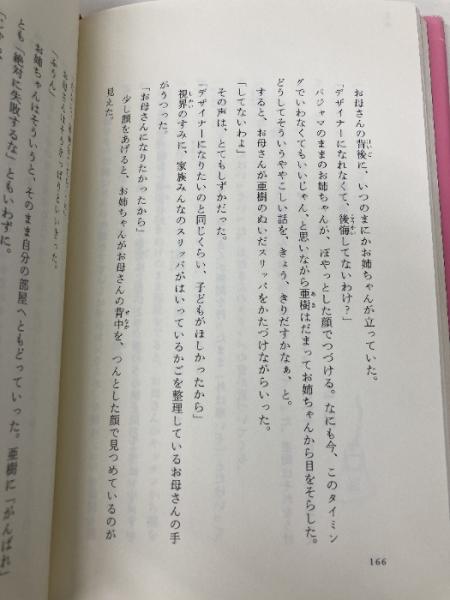 お母さんの背後に、いつのまにかお姉ちゃんが立っていた。
「デザイナーになれなくて、後悔してないわけ？」
パジャマのままのお姉ちゃんが、ぼやっとした顔でつづける。なにも今、このタイミン
グでいわなくてもいいじゃん、と思いながら亜樹はだまってお姉ちゃんから目をそらした。
どうしてそういうややこしい話を、きょう、きりだすかなぁ、と。
すると、お母さんが亜樹のぬいだスリッパをかたづけながらいった。
「してないわよ」
その声は、とてもしずかだった。
「デザイナーになりたいのと同じくらい、子どもがほしかったから」
視界のすみに、家族みんなのスリッパがはいっているかごを整理しているお母さんの手
がうつった。
「お母さんになりたかったから」
少し顔をあげると、お姉ちゃんがお母さんの背中を、つんとした顔で見つめているのが
見えた。
「ふうん」
お姉ちゃんはそういうと、そのまま自分の部屋へともどっていった。亜樹に「がんばれ」
とも「絶対に失敗するな」ともいわずに。
166